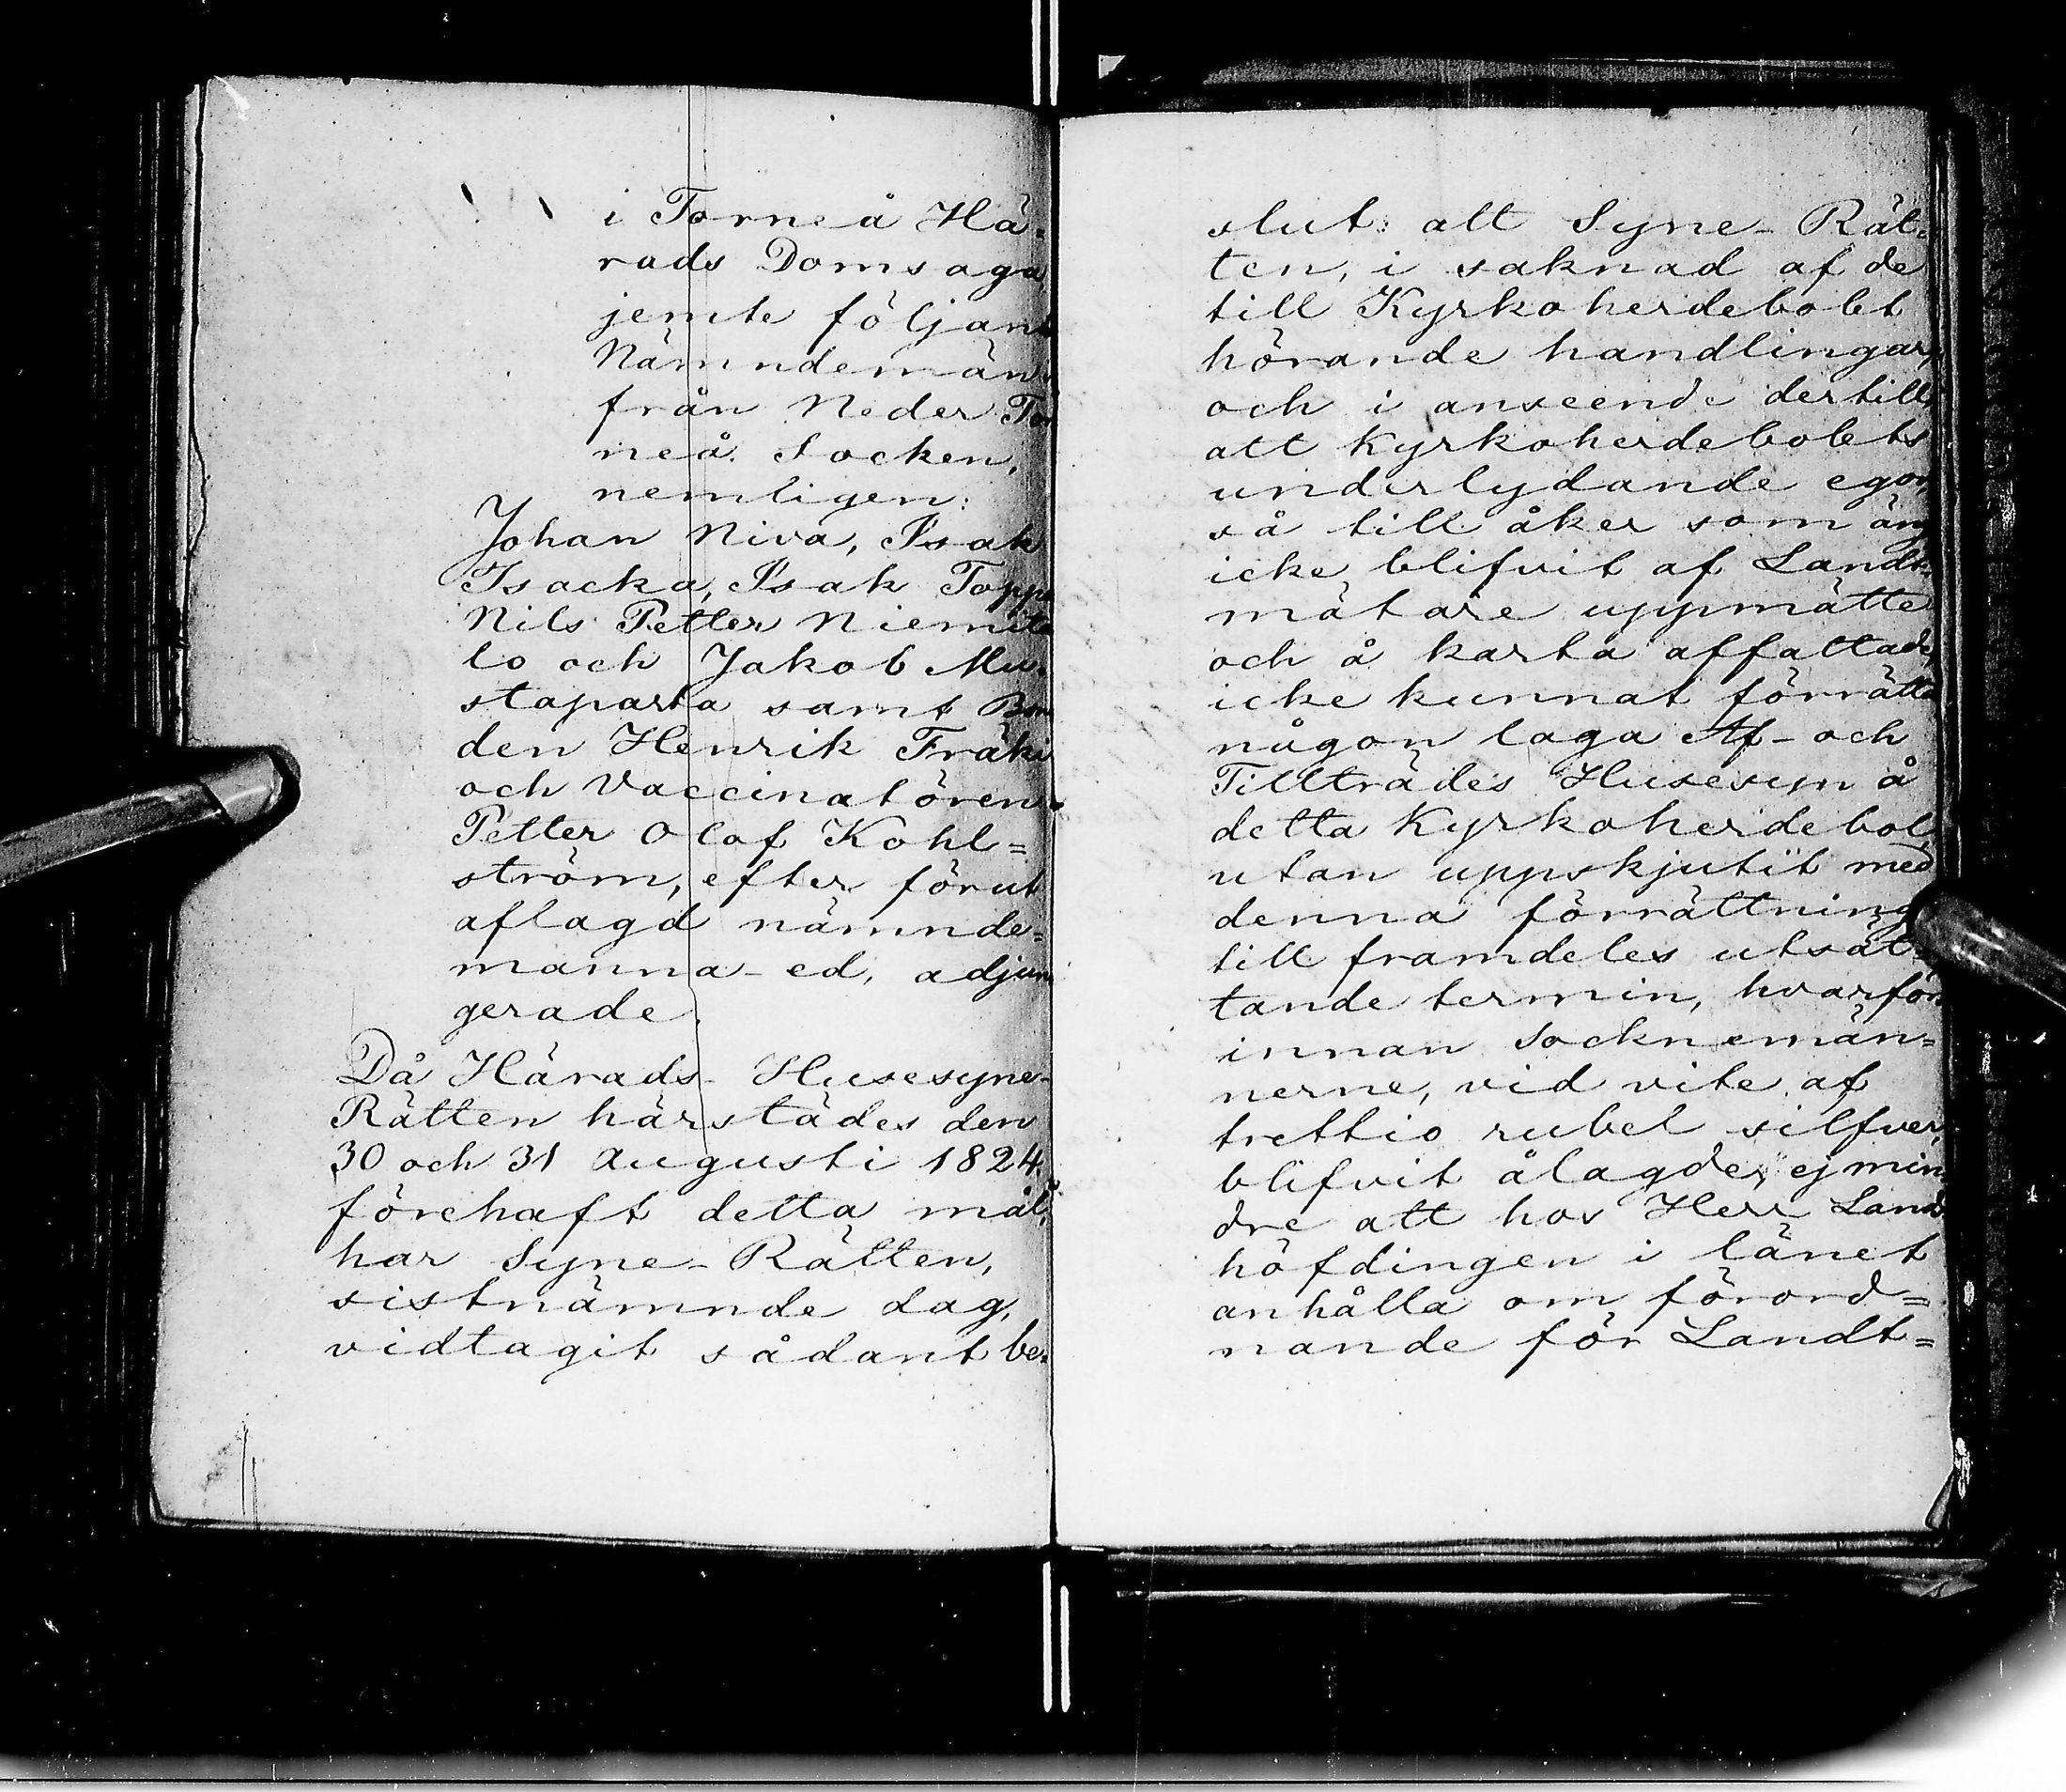 i Torneå Hä-
rads Domsaga,
jemte följan
Nämndemän
från Neder Tor
neå Socken,
nemligen:
Johan Niva, Isak
Isacka, Isak Toppo
Nils Petter Niemita
lo och Jakob Mu-
staparta samt Bon
den Henrik Fräki
och Vaccinatören
Petter Olof Kohl=
ström, efter förut
aflagd nämnde=
manna-ed, adjun
gerade.
Då Härads-Husesyne-
Rätten härstädes den
30 och 31 Augusti 1824,
förehaft detta mål,
har Syne-Rätten,
sistnämnde dag,
vidtagit sådant be-
slut: att Syne-Rät-
ten, i saknad af de
till Kyrkoherdebolet
hörande handlingar,
och i anseende dertill,
att Kyrkoherdebolets
underlydande egor,
så till åker som äng
icke blifvit af Landt-
mätare uppmätte
och å karta affattade,
icke kunnat förrätta
någon laga Af- och
Tillträdes Husesyn å
detta Kyrkoherdebol,
utan uppskjutit med
denna förrättning
till framdeles utsät-
tande termin, hvarför
innan socknemän=
nerne, vid vite af
trettio rubel silfver,
blifvit ålagde, ej min
dre att hos Herr Land
höfdingen i länet
anhålla om förord=
nande för Landt=